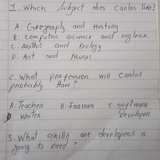 1. Which Subject does Carlos like?
A Geography and History
B. Computer Science and
C. Maths and Biology
D Art and Music
2. What profession will Carlos
probably have?
A. Teacher B. Farmer C. Software
D Waiter developer
3. What skills are developed
going to need?